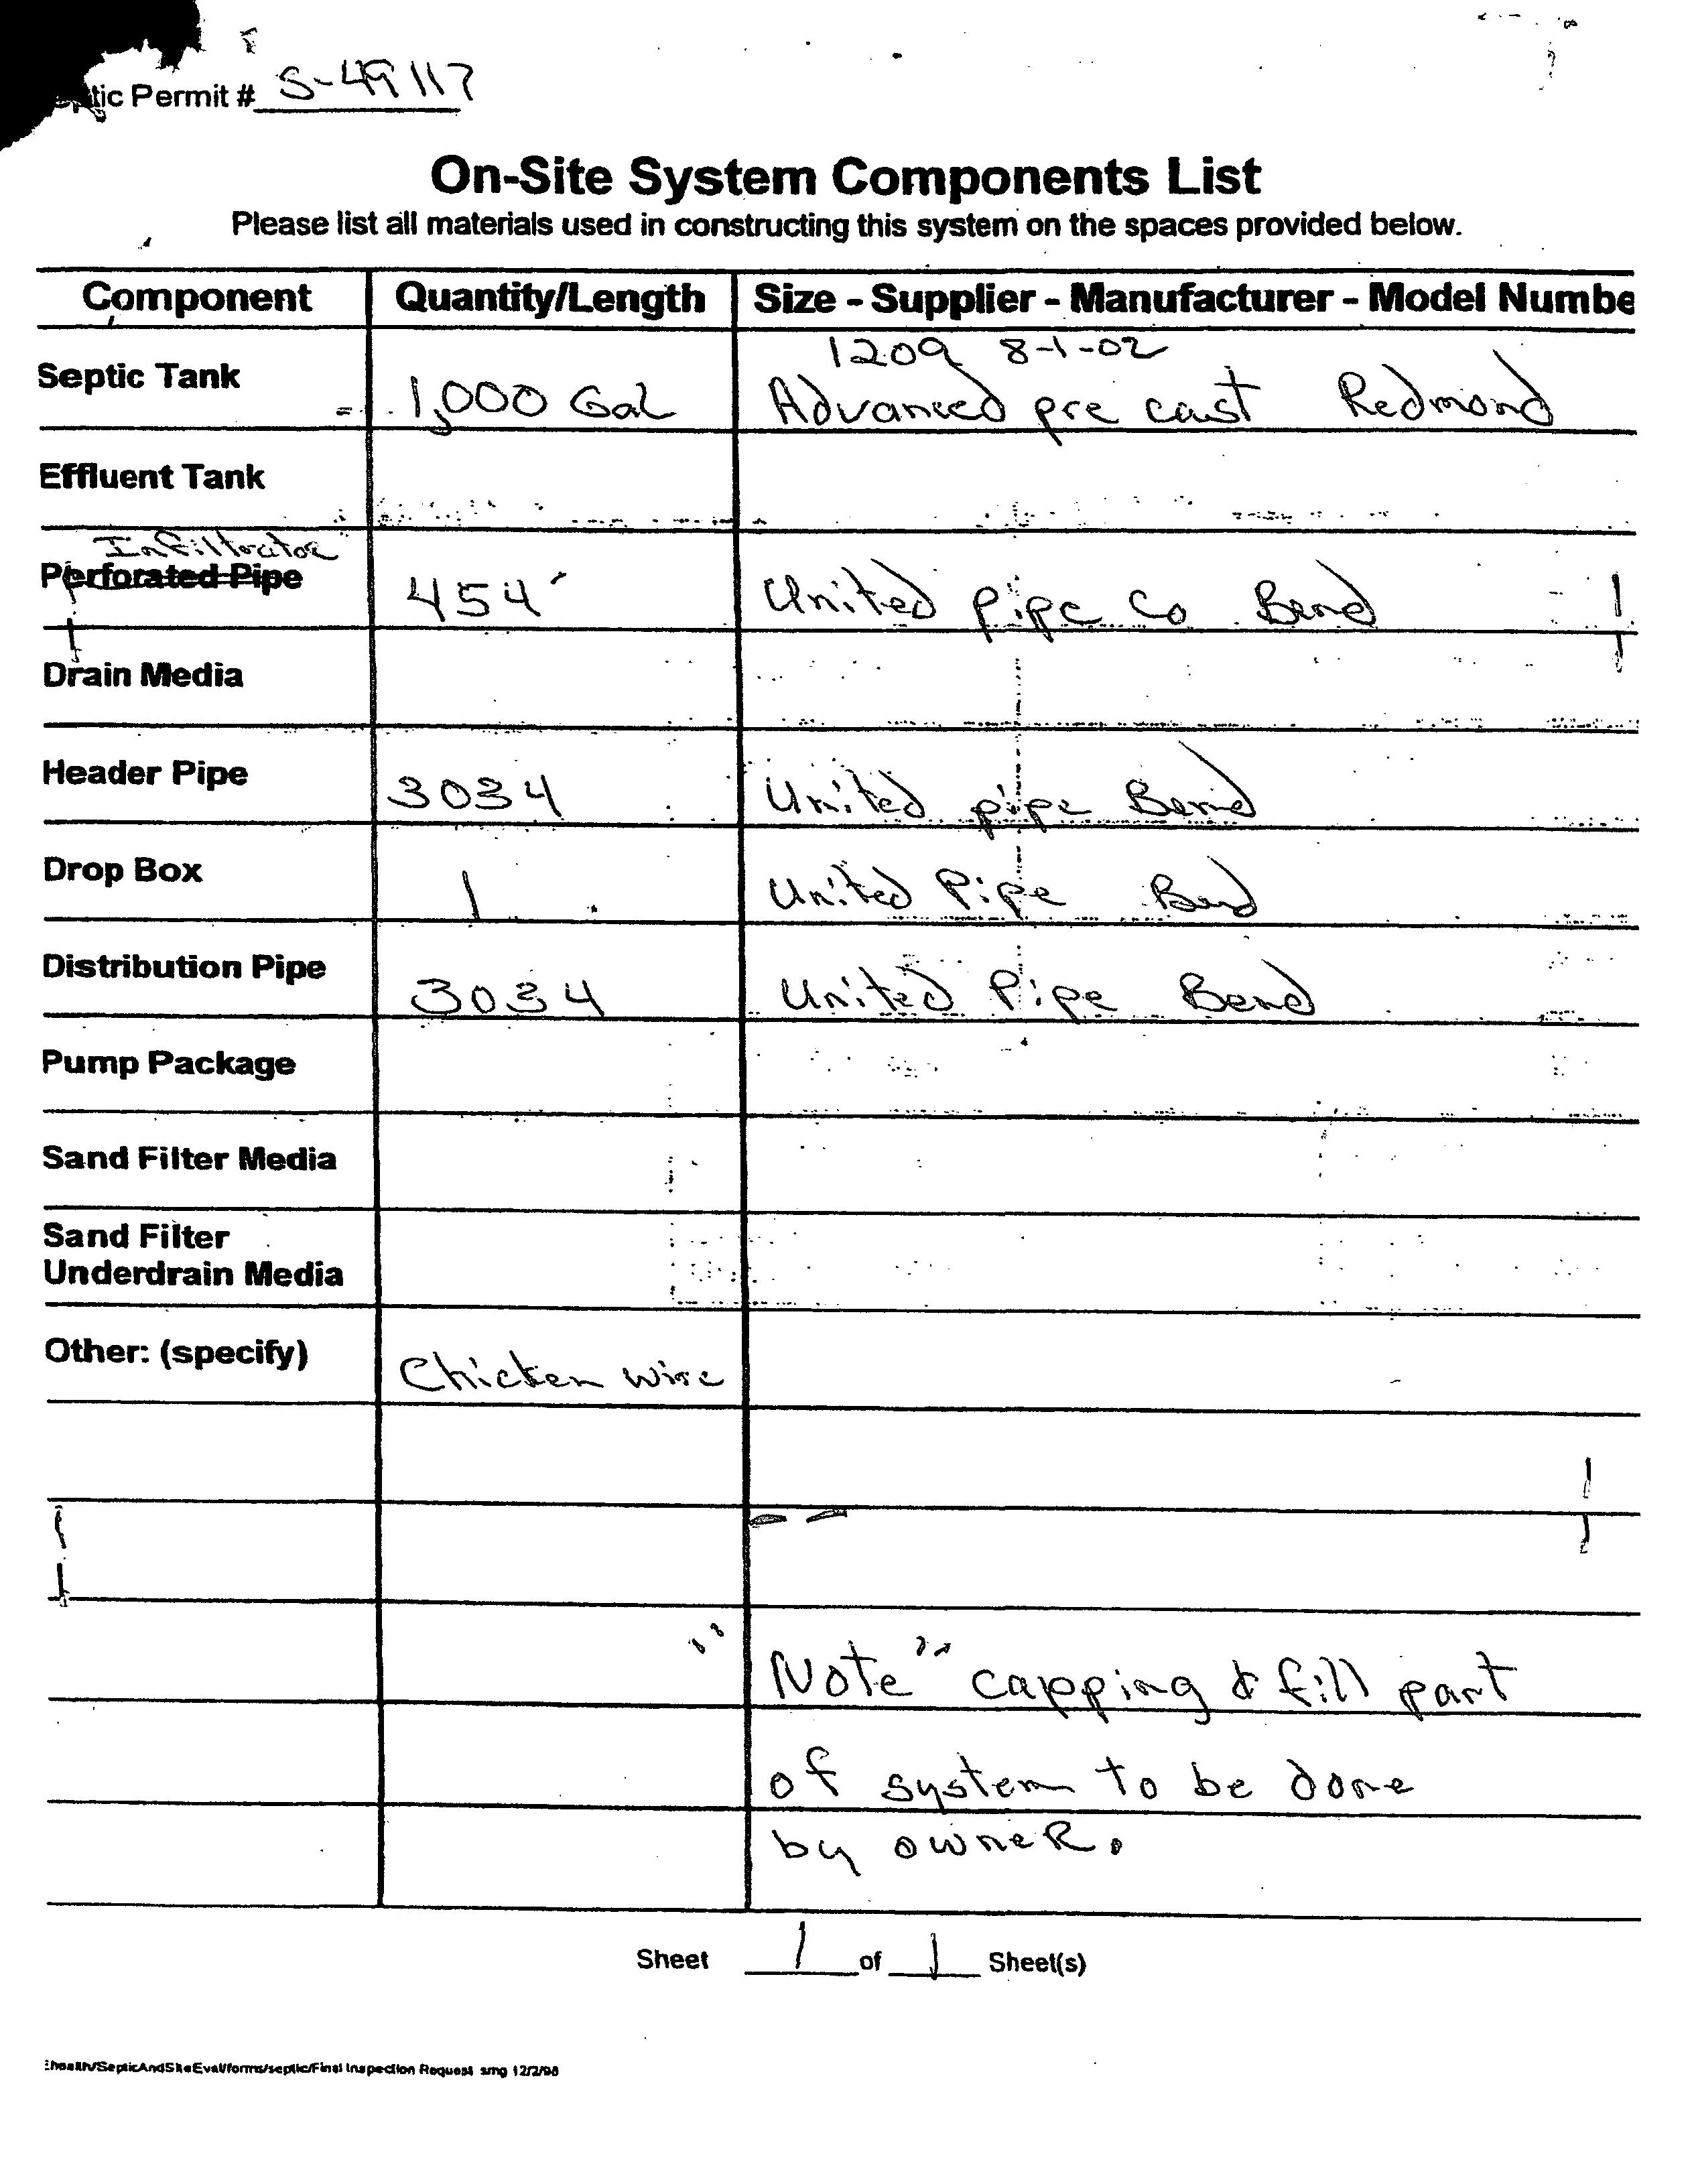 tic Permit # S-49117
On-Site System Components List
Please list all materials used in constructing this system on the spaces provided below.
Component Quantity/Length Size - Supplier - Manufacturer - Model Numbe
1209 8-1-02
Septic Tank 1,000 Gal Advanced pre cast Redmond
Effluent Tank
Infiltrator
Perforated Pipe 454' United pipe Co Bend
Drain Media
Header Pipe 3034 United pipe Bend
Drop Box 1 United Pipe Bend
Distribution Pipe 3034 United Pipe Bend
Pump Package
Sand Filter Media
Sand Filter
Underdrain Media
Other: (specify) Chicken wire
"Note" capping & fill part
of system to be done
by owneR.
Sheet 1 of 1 Sheet(s)
health/SepticAndSiteEval/forms/septic/Final Inspection Request smg 12/2/98